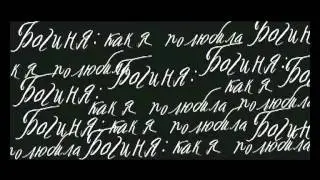 Богиня: как я полюбила Богиня:
к я полюбила Богиня: Богиня:
Богиня: как я полюбила Бо
как я полюбила Богиня:
Богиня: как я полюбила Богин
полюбила Богиня: как я полюбила